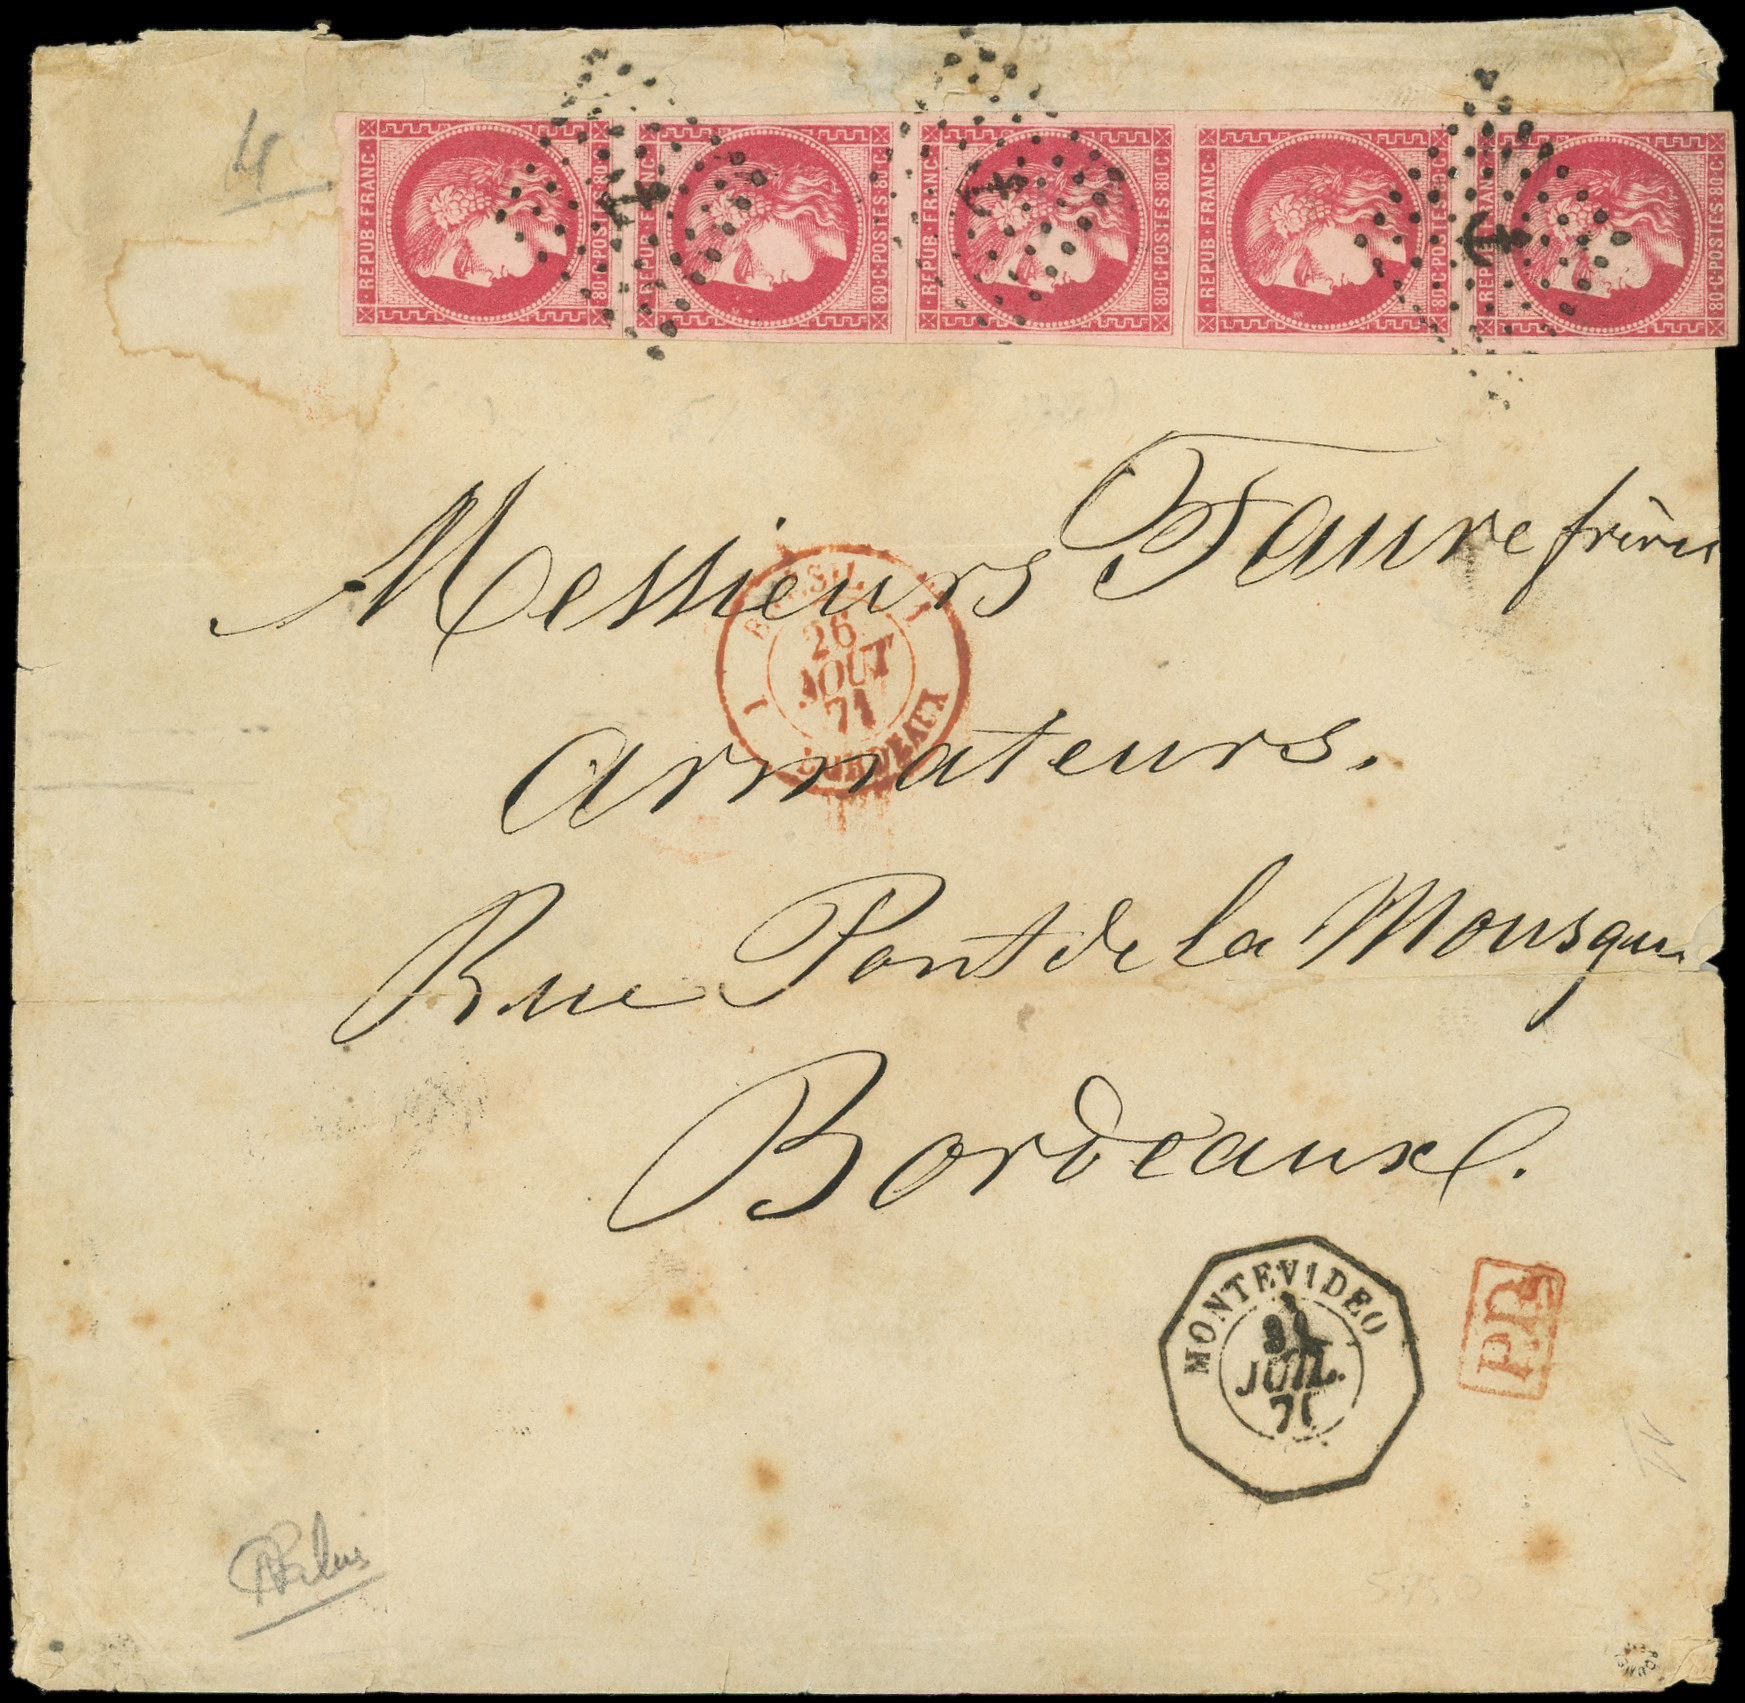 4
REPUB·FRANC· 80·C·POSTES·80·C·
REPUB·FRANC· 80·C·POSTES·80·C·
REPUB·FRANC· 80·C·POSTES·80·C·
REPUB·FRANC· 80·C·POSTES·80·C·
REPUB·FRANC· 80·C·POSTES·80·C·
Messieurs Faure frères
armateurs.
Rue Pont de la Mousque
Bordeaux.
1 BRESIL 1
26
AOUT
71
BORDEAUX
MONTEVIDEO
JUIL.
71
P.P.
ROUMET